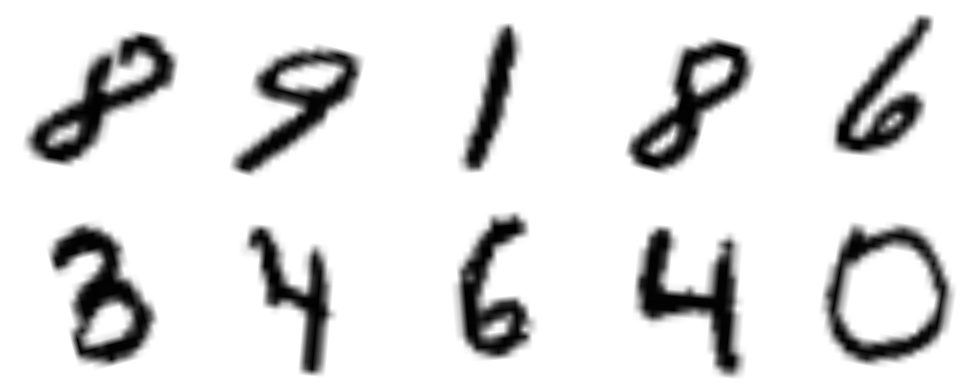 8 9 1 8 6
3 4 6 4 0